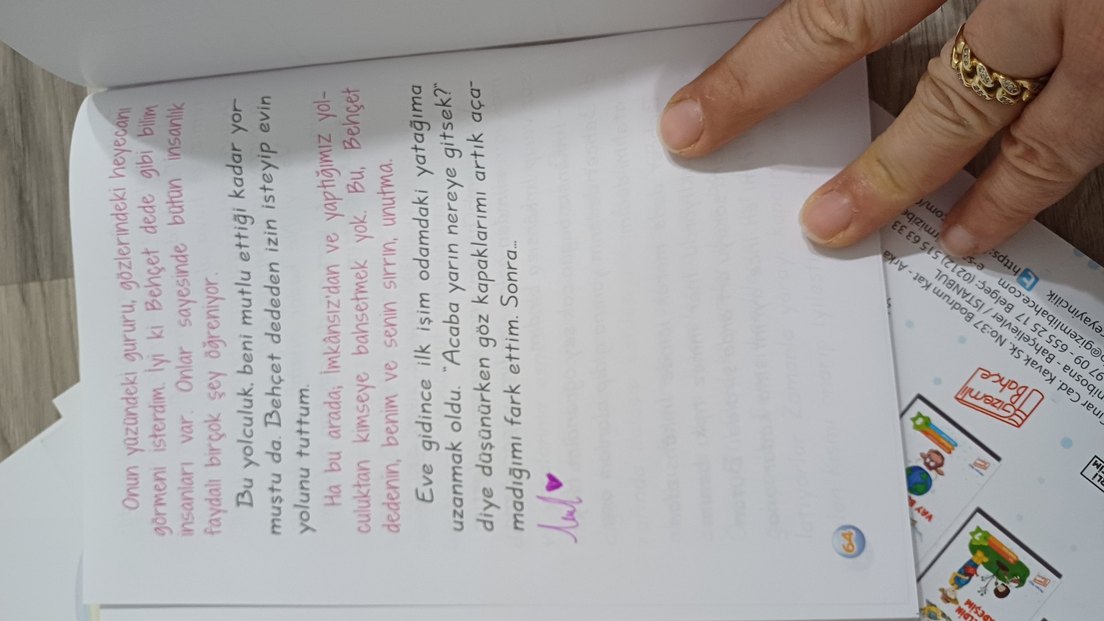 Onun yüzündeki gururu, gözlerindeki heyecanı
görmeni isterdim. İyi ki Behçet dede gibi bilim
insanları var. Onlar sayesinde bütün insanlık
faydalı birçok şey öğreniyor.
Bu yolculuk, beni mutlu ettiği kadar yor-
muştu da. Behçet dededen izin isteyip evin
yolunu tuttum.
Ha bu arada, İmkânsız'dan ve yaptığımız yol-
culuktan kimseye bahsetmek yok. Bu, Behçet
dedenin, benim ve senin sırrın, unutma.
Eve gidince ilk işim odamdaki yatağıma
uzanmak oldu. "Acaba yarın nereye gitsek?"
diye düşünürken göz kapaklarımı artık aça-
madığımı fark ettim. Sonra...
64
Kavak Sk. No:37 Bodrum Kat - Arka
Bahçelievler / İSTANBUL
09 - 655 25 17 Belgeç: (0212) 515 63 33
Gizemli
Bahçe